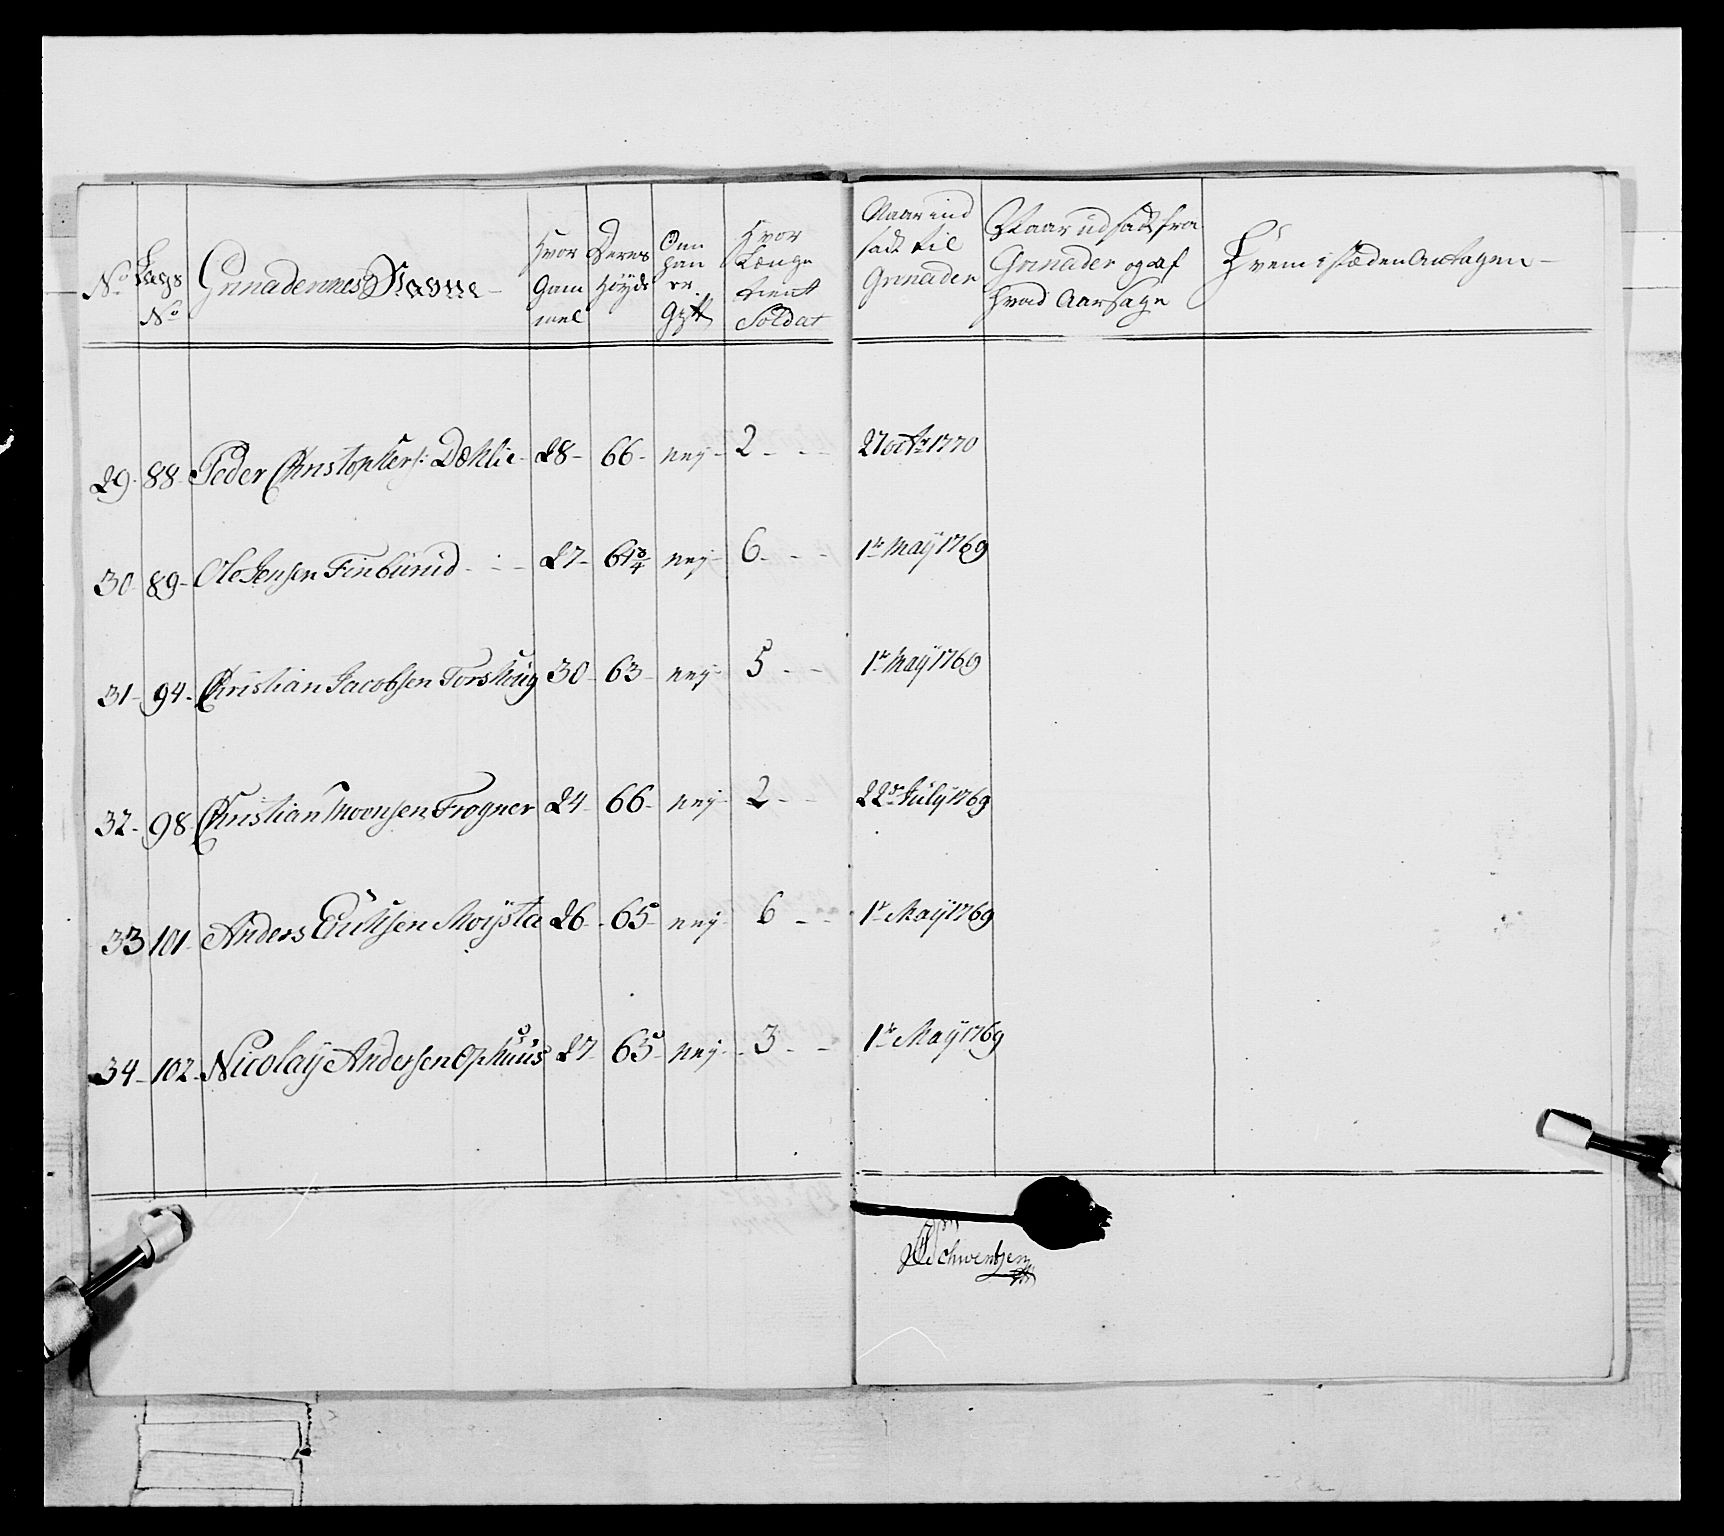 No
Lægs No
Grenaderernes Navne
Hvor Gam mel
Deres Höyde
Om han er Gift
Hvor Længe tient Soldat
Naar ind sadt til Grenader
Naar udsadt fra Grenader og af hvad Aarsage
Hvem i stæden Antagen
29 88 Peder Christophers: Dæhlie 28 66 ney 2 27 octbr 1770
30 89 Ole Jensen Finbürud 27 61¾ ney 6 1te Maÿ 1769
31 94 Christian Jacobsen Torskoüg 30 63 ney 5 1te Maÿ 1769
32 98 Christian Moensen Frogner 24 66 ney 2 22de Julÿ 1769
33 101 Anders Erichsen Moÿsta 26 65 ney 6 1te Maÿ 1769
34 102 Nicolaÿ Andersen Ophuüs 27 65 ney 3 1te Maÿ 1769
Schwentzen